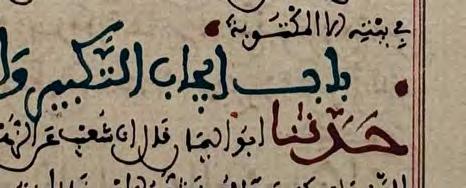 في بيته الا المكتوبة
باب إيجاب التكبير وا
حدثنا ابو اليمان قال انا شعيب عن الزهر